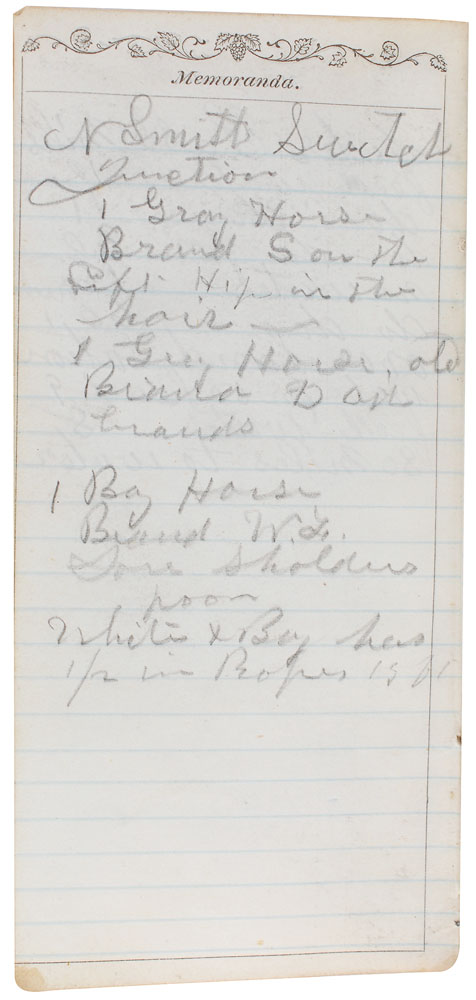 Memoranda.
N Smith Swetch
Junction
1 Gray Horse
Brand S on the
Left Hip in the
hair
1 Grey Horse, old
Brand D
brands
1 Bay Horse
Brand W.
Sore sholders
poor
White & Bay has
1/2 in Ropes